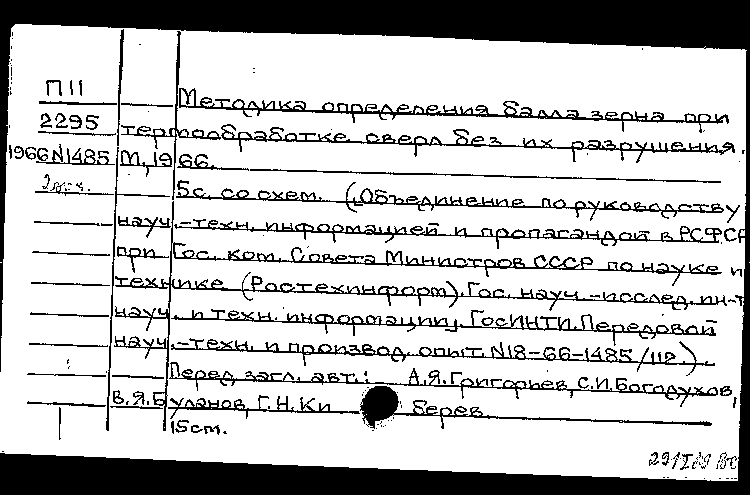 П11
Методика определения балла зерна при
2295 термообработке сверл без их разрушения.
1966 N1485 М., 1966.
5с. со схем. (Объединение по руководству
науч.-техн. информацией и пропагандой в РСФСР
при Гос. ком. Совета Министров СССР по науке и
технике (Ростехинформ). Гос. науч.-исслед. ин-т
науч. и техн. информации. ГосИНТИ. Передовой
науч.-техн. и производ. опыт. N18-66-1485/112.)
Перед загл. авт.: А.Я.Григорьев, С.И.Богодухов,
В.Я.Буланов, Г.Н.Ки берев.
15cm.